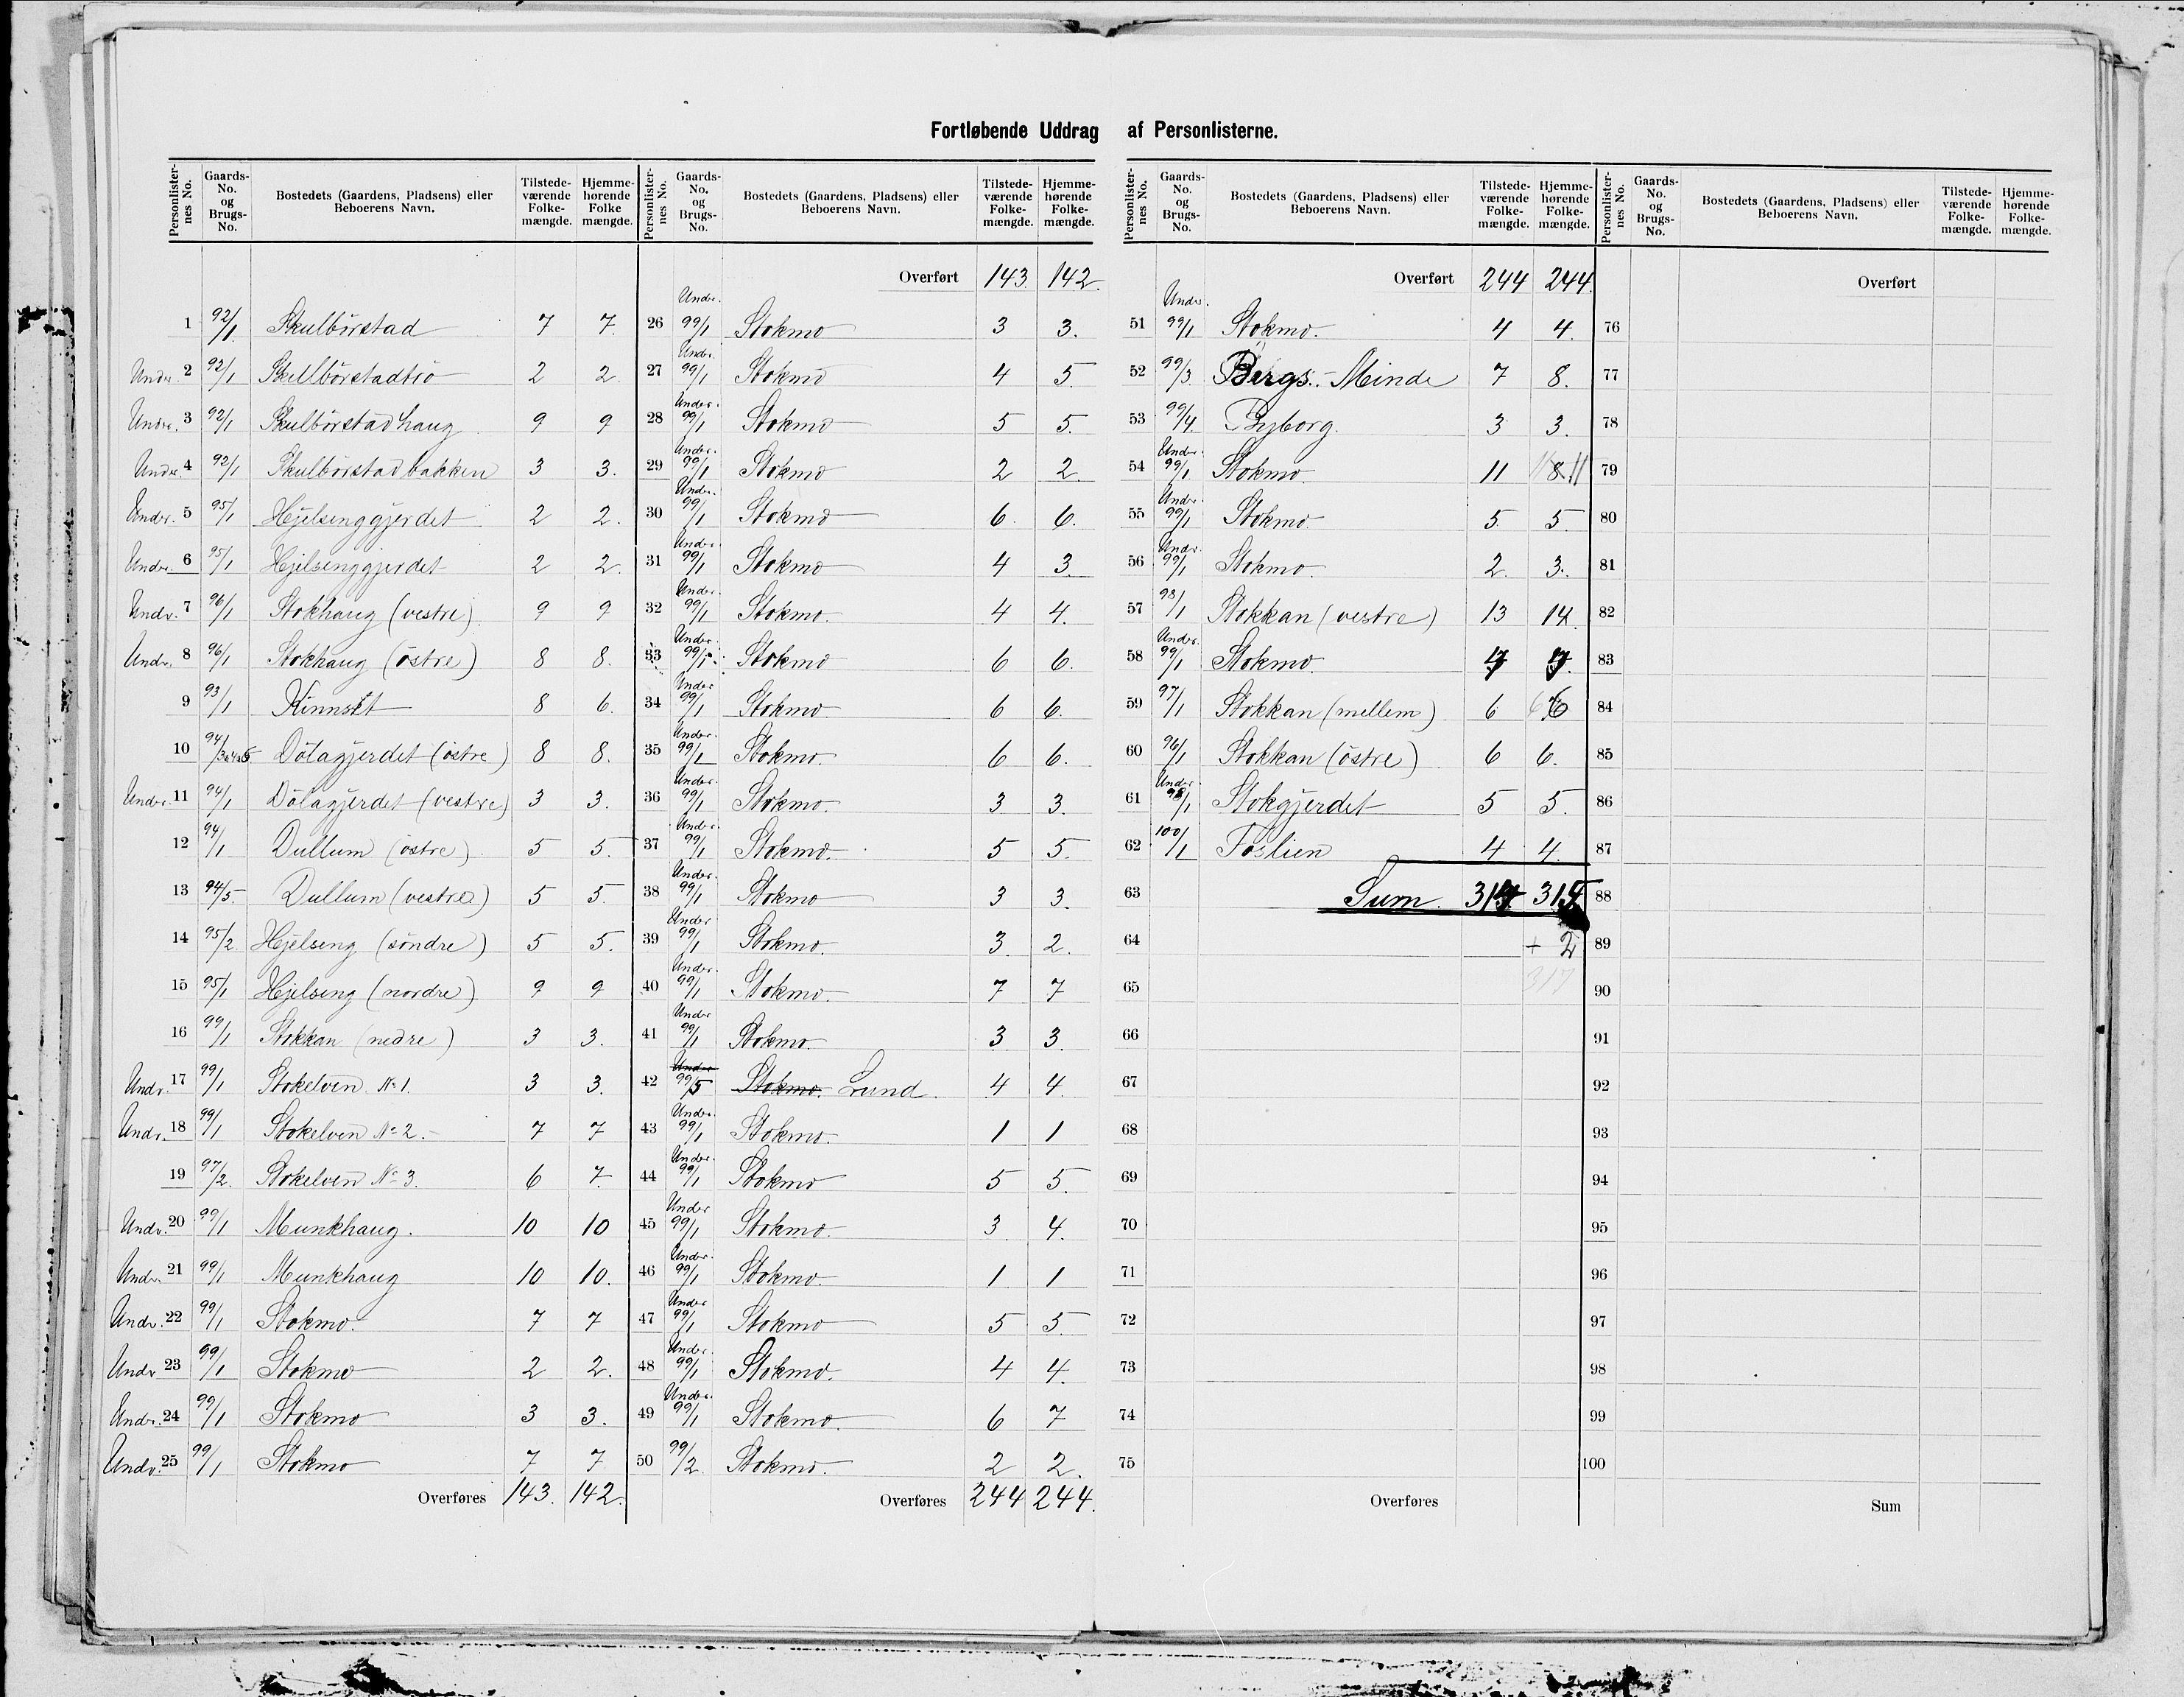 Fortløbende Uddrag af Personlisterne.
Personlisternes No. Gaards-No. og Brugs-No. Bostedets (Gaardens, Pladsens) eller Beboerens Navn. Tilstedeværende Folkemængde. Hjemmehørende Folkemængde.
1 92/1 Skulbörstad 7 7.
Under 2 92/1 Skulbörstadtrö 2 2.
Under. 3 92/1 Skulbörstadhaug 9 9
Under. 4 92/1 Skulbörstadbakken 3 3.
Under. 5 95/1 Hjelsinggjerdet 2 2.
Under. 6 95/1 Hjelsinggjerdet 2 2.
Under. 7 96/1 Stokhaug (vestre) 9 9
Under. 8 96/1 Stokhaug (östre) 8 8.
9 93/1 Kinnset 8 6.
10 94/3a4a5 Dölagjerdet (östre) 8 8.
Under. 11 94/1 Dölagjerdet (vestre) 3 3.
12 94/1 Dullum (östre) 5 5.
13 94/5. Dullum (vestre) 5 5.
14 95/2. Hjelseng (söndre) 5 5.
15 95/1 Hjelseng (nordre) 9 9
16 99/1 Stokkan (nedre) 3 3.
Under. 17 99/1 Stokelven No 1. 3 3.
Under. 18 99/1 Stokelven No 2. 7 7
19 97/2. Stokelven No 3. 6 7.
Under. 20 99/1 Munkhaug. 10 10
Under. 21 99/1 Munkhaug 10 10.
Under. 22 99/1 Stokmo. 7 7
Under 23 99/1 Stokmo 2 2.
Under. 24 99/1 Stokmo 3 3.
Under. 25 99/1 Stokmo 7 7
Overføres 143. 142.
Personlisternes No. Gaards-No. og Brugs-No. Bostedets (Gaardens, Pladsens) eller Beboerens Navn. Tilstedeværende Folkemængde. Hjemmehørende Folkemængde.
Overført 143. 142.
26 Under. 99/1 Stokmo 3 3.
27 Under. 99/1 Stokmo 4 5.
28 Under. 99/1 Stokmo 5 5.
29 Under. 99/1 Stokmo 2 2.
30 Under. 99/1 Stokmo 6. 6.
31 Under. 99/1 Stokmo 4 3.
32 Under. 99/1 Stokmo. 4 4.
33 Under. 99/1 Stokmo 6 6.
34 Under 99/1 Stokmo 6 6.
35 Under. 99/1 Stokmo. 6 6.
36 Under. 99/1 Stokmo. 3 3.
37 Under. 99/1 Stokmo. 5 5.
38 Under. 99/1 Stokmo 3 3.
39 Under 99/1 Stokmo. 3 2.
40 Under. 99/1 Stokmo. 7 7
41 Under 99/1 Stokmo. 3 3.
42 Under 99/5 Stokmo. Lund. 4 4.
43 Under. 99/1 Stokmo. 1 1
44 Under. 99/1 Stokmo 5 5.
45 Under 99/1 Stokmo. 3 4.
46 Under. 99/1 Stokmo. 1 1
47 Under 99/1 Stokmo 5 5.
48 Under. 99/1 Stokmo. 4 4.
49 Under. 99/1 Stokmo. 6 7
50 99/2. Stokmo. 2 2.
Overføres 244 244.
Personlisternes No. Gaards-No. og Brugs-No. Bostedets (Gaardens, Pladsens) eller Beboerens Navn. Tilstedeværende Folkemængde. Hjemmehørende Folkemængde.
Overført 244 244.
51 Under. 99/1 Stokmo. 4 4.
52 99/3. Bergs-Minde 7 8.
53 99/4. Byborg. 3 3.
54 Under. 99/1 Stokmo. 11 11 8 11
55 Under. 99/1 Stokmo. 5 5.
56 Under. 99/1 Stokmo. 2. 3.
57 98/1 Stokkan (vestre) 13 14.
58 Under. 99/1 Stokmo.
59 97/1 Stokkan (mellem) 6 6
60 96/1 Stokkan (östre) 6 6.
61 Under 98/1 Stokgjerdet 5 5.
62 100/1 Föslien 4 4.
63 Sum. 317 315
64 + 2
65 317
66
67
68
69
70
71
72
73
74
75
Overføres
Personlisternes No. Gaards-No. og Brugs-No. Bostedets (Gaardens, Pladsens) eller Beboerens Navn. Tilstedeværende Folkemængde. Hjemmehørende Folkemængde.
Overført
76
77
78
79
80
81
82
83
84
85
86
87
88
89
90
91
92
93
94
95
96
97
98
99
100
Sum